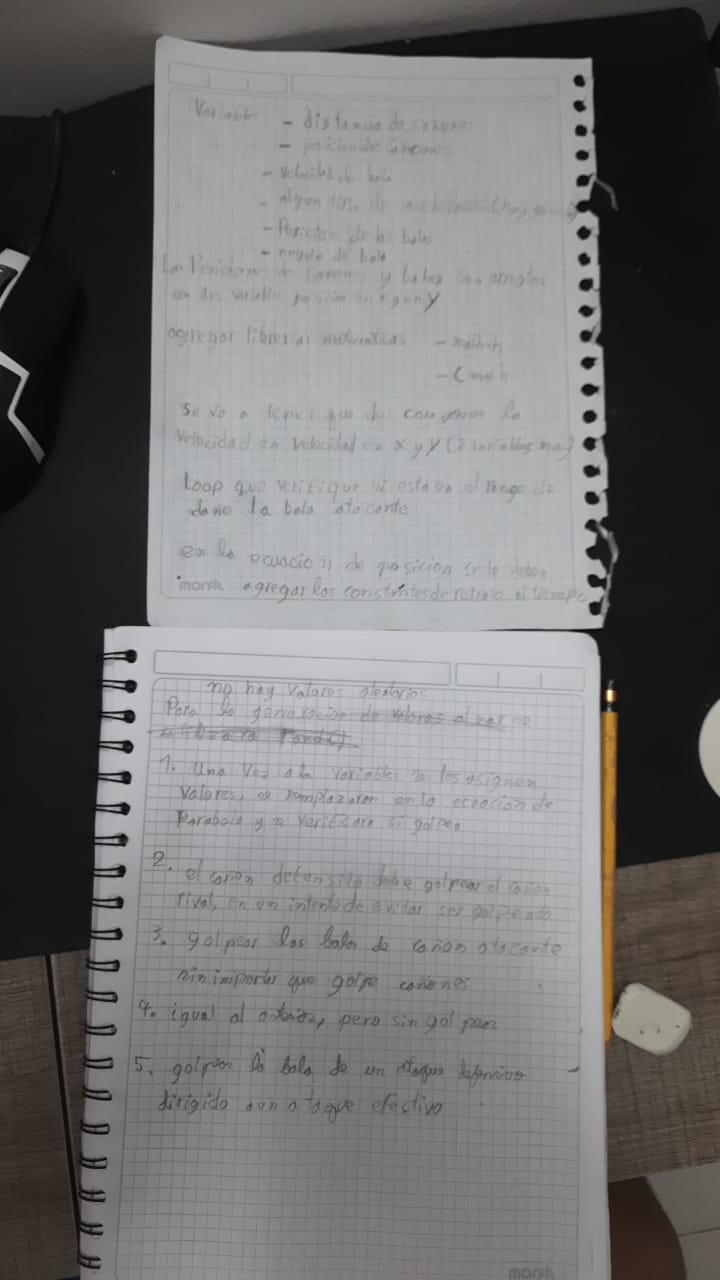 Variables - distancia de cañones
- posicion de cañones
- velocidad de bala
- algun tipo de (hay
- Posicion de las balas
- angulo de bala
Las Posiciones de cañones y balas son arreglos
con dos variables posicion en x y en y
agregar librerias matematicas - math.h
- Cmath
se va a tener que la
velocidad en velocidad en x y y (2 variables mas)
Loop que verifique si esta en el rango de
daño la bala atacante
en la ecuacion de posicion se le deben
marsh agregar las constantes de retraso al tiempo
no hay valores aleatorios
Para la generacion de valores al azar no
utilizara rand()
1. Una vez a la variables se les asignen
valores, se remplazaran en la ecuacion de
Parabola y se verificara si golpea
2. el cañon defensivo debe golpear el cañon
rival, en un intento de evitar ser golpeado
3. golpear las balas de cañon atacante
sin importar que golpe cañones
4. igual al anterior, pero sin golpear
5. golpear la bala de un ataque defensivo
dirigido a un ataque efectivo
marsh